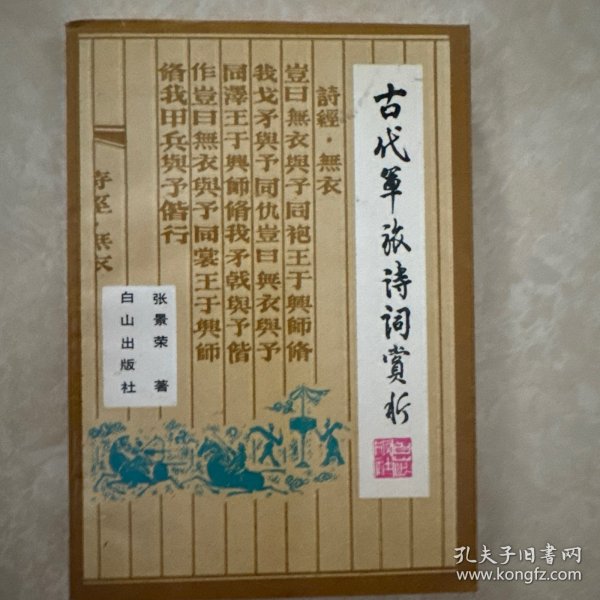 古代軍旅诗词赏析
詩經·無衣
豈曰無衣與予同袍王于興師脩
我戈矛與予同仇豈曰無衣與予
同澤王于興師脩我矛戟與予偕
作豈曰無衣與予同裳王于興師
脩我甲兵與予偕行
詩經·無衣
张景荣 著
白山出版社
孔夫子旧书网
www.kongfz.com